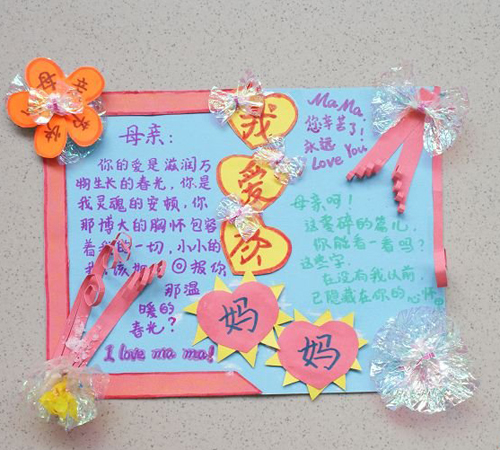 母亲:
你的爱是滋润万
物生长的春光,你是
我灵魂的安顿,你
那博大的胸怀包容
着 的一切,小小的
我 该 回报你
那温
暖的
春光?
I love ma ma!
我
爱
你
妈
妈
MaMa
您辛苦了!
永远
Love You
母亲呀!
这零碎的篇儿,
你能看一看吗?
这些字,
在没有我以前,
已隐藏在你的心怀